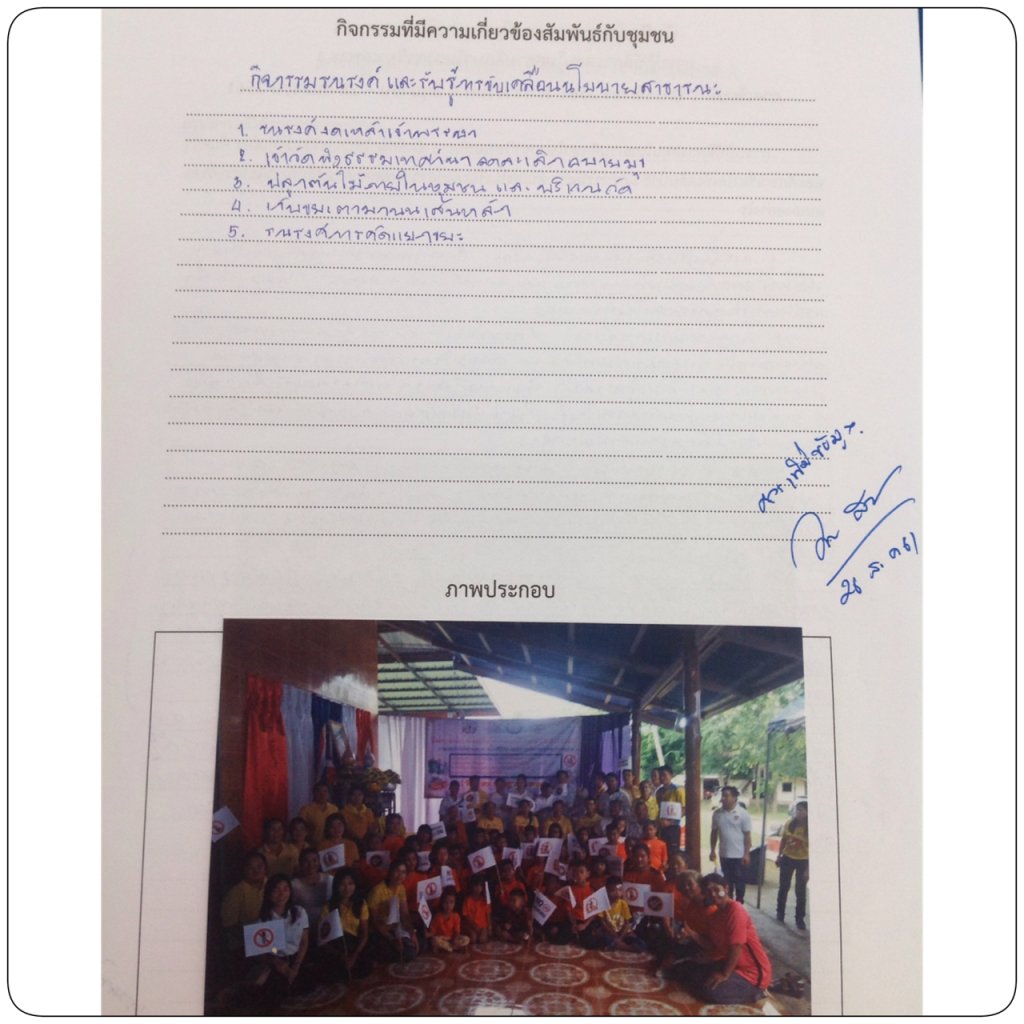 กิจกรรมที่มีความเกี่ยวข้องสัมพันธ์กับชุมชน
กิจกรรมรณรงค์ และรับรู้การขับเคลื่อนนโยบายสาธารณะ
1. รณรงค์งดเหล้าเข้าพรรษา
2. เข้าวัดฟังธรรมเทศนา ลดละเลิกอบายมุข
3. ปลูกต้นไม้ภายในชุมชน และ บริเวณวัด
4. เก็บขยะตามถนนเส้นหลัก
5. รณรงค์การคัดแยกขยะ
26 ส.ค 61
ภาพประกอบ